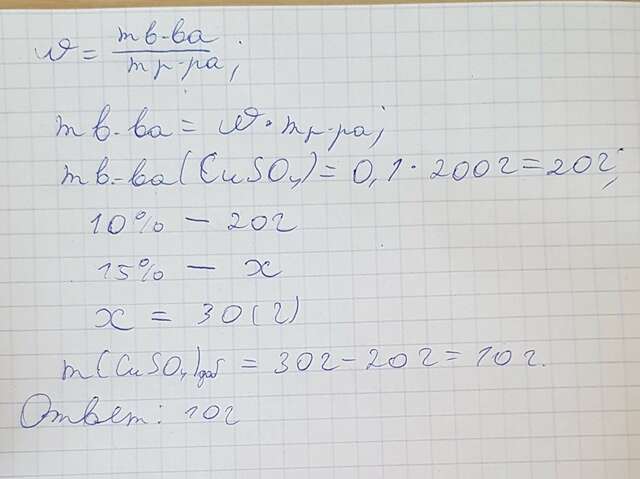 w = m в-ва / m р-ра;
m в-ва = w · m р-ра;
m в-ва (CuSO₄) = 0,1 · 200г = 20г;
10% — 20г
15% — x
x = 30 (г)
m (CuSO₄) доб = 30г - 20г = 10г.
Ответ: 10г